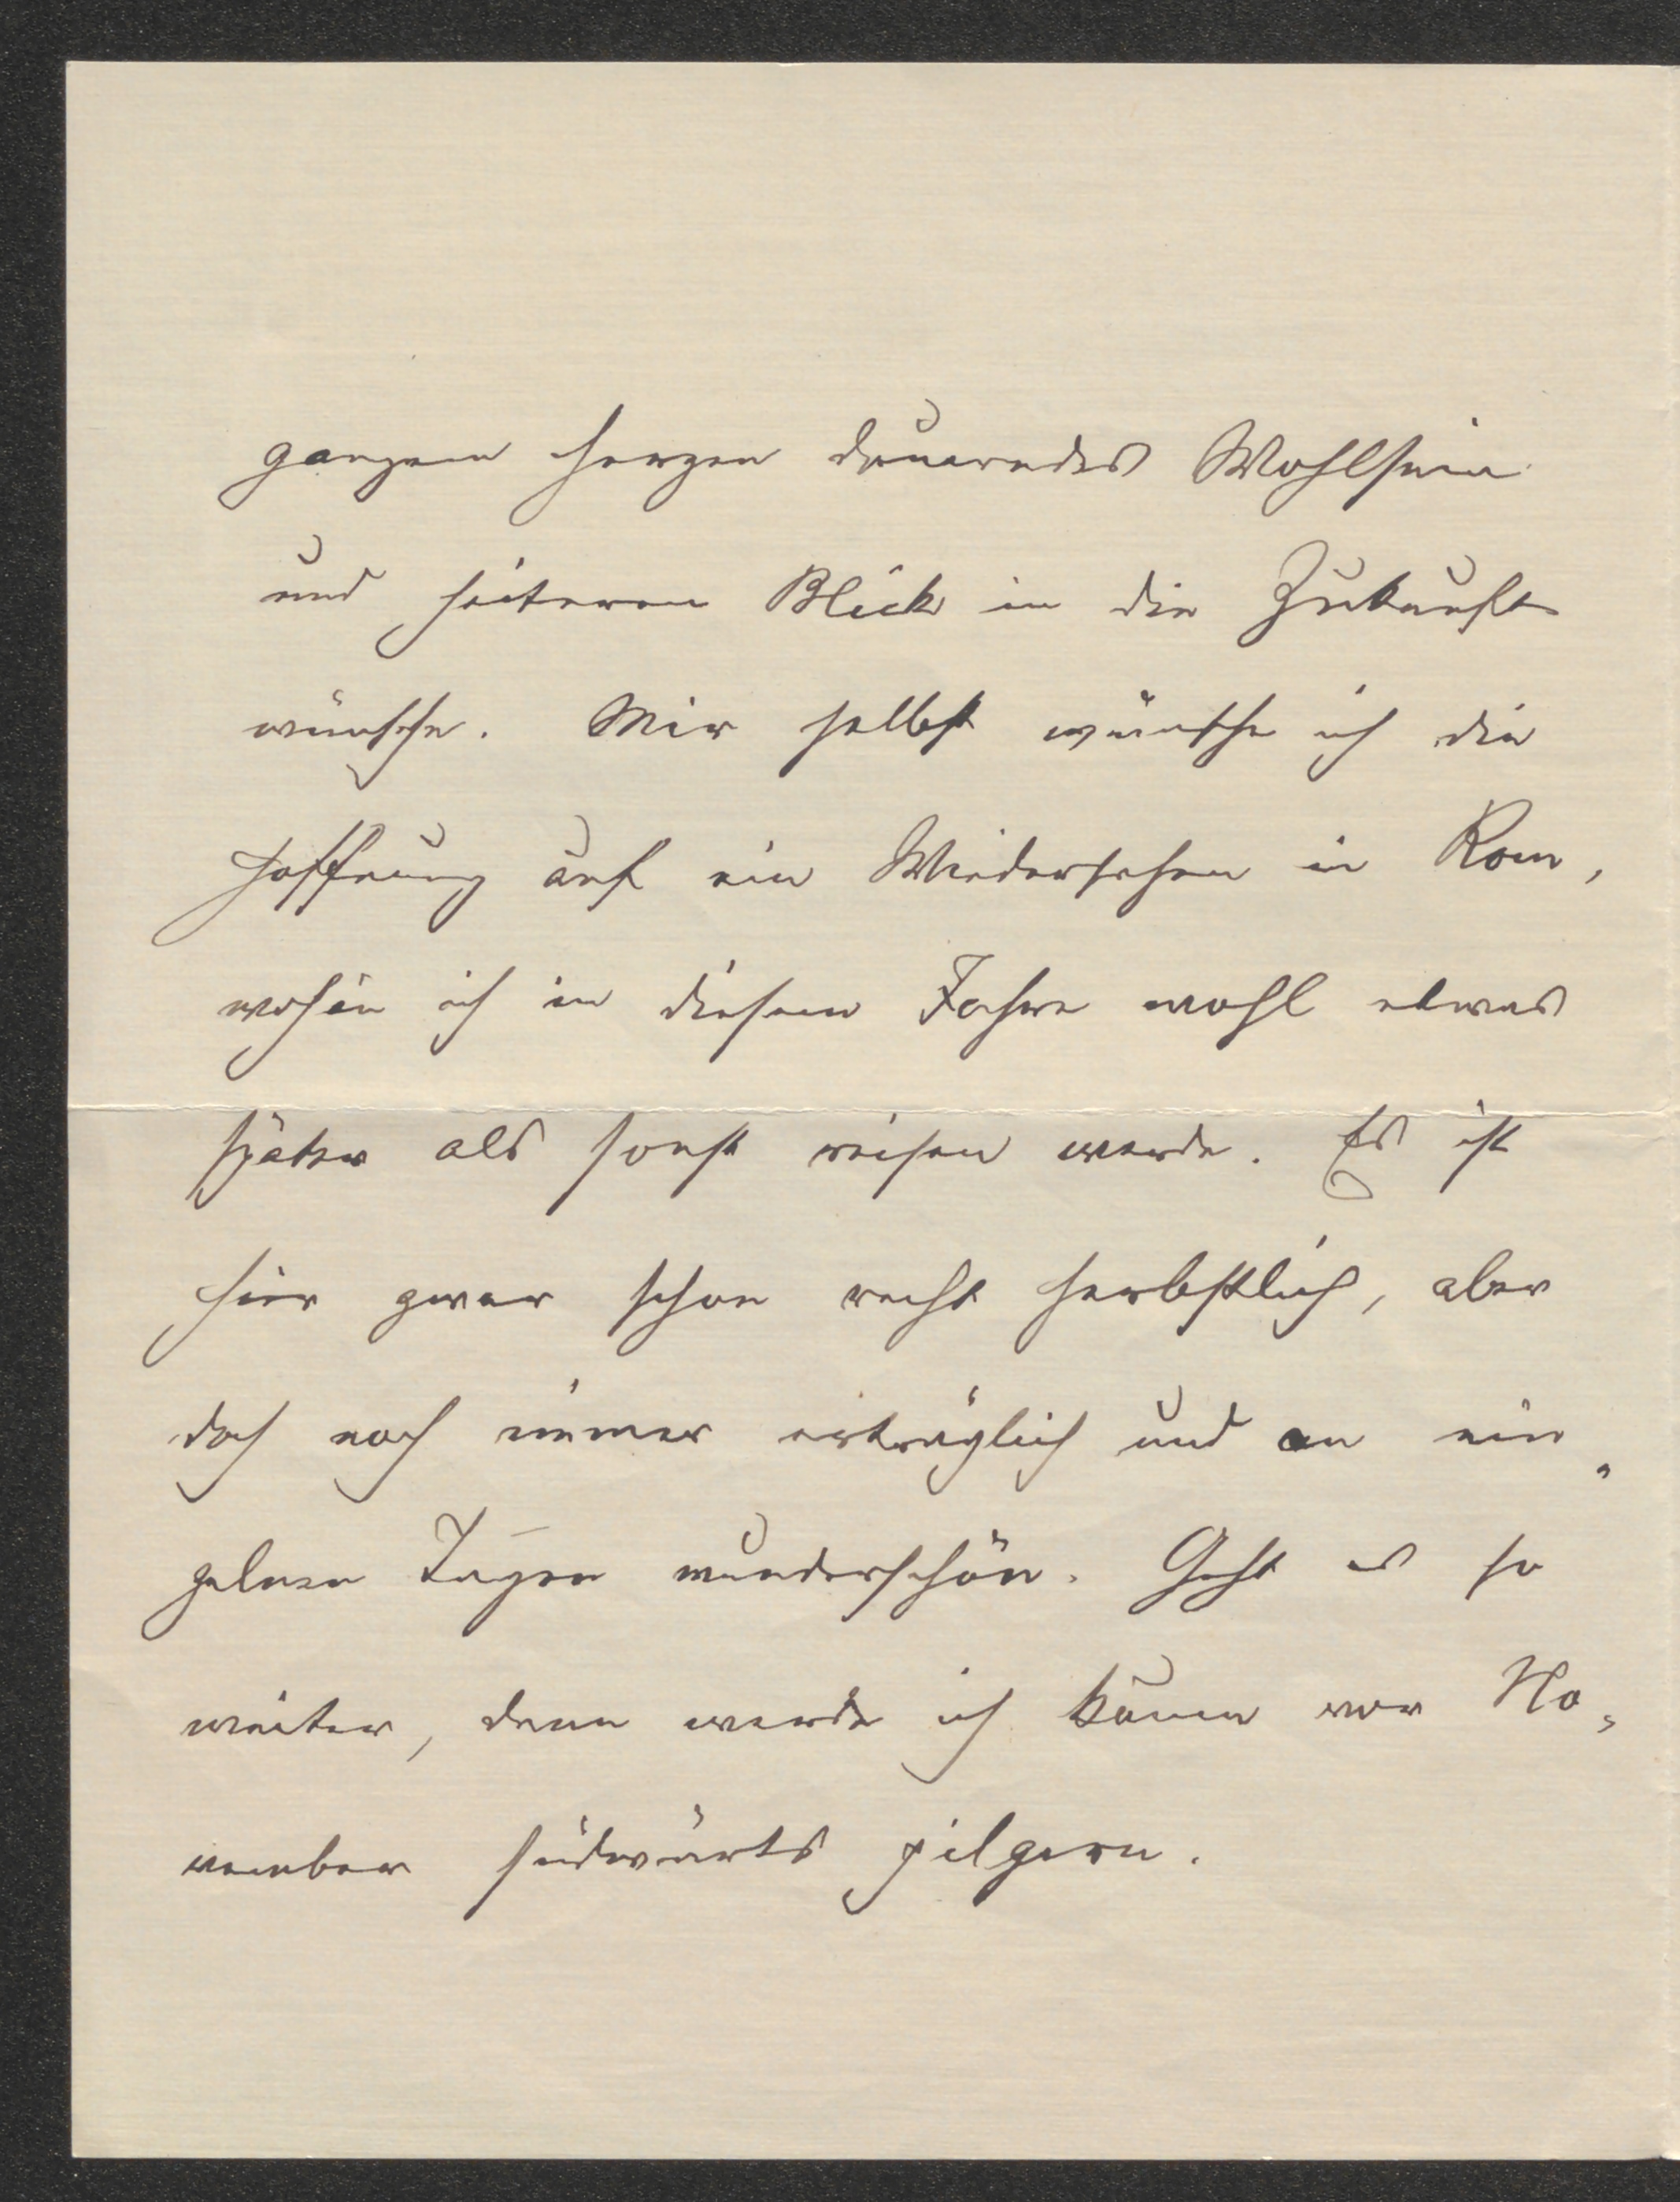 ganzem Herzen dauerndes Wohlsein
und heiteren Blick in die Zukunft
wünsche. Mir selbst wünsche ich die
Hoffnung auf ein Wiedersehen in Rom,
wohin ich in diesem Jahre wohl etwas
später als sonst reisen werde. Es ist
hier zwar schon recht herbstlich, aber
doch noch immer erträglich und an ein-
zelnen Tagen wunderschön. Geht es so
weiter, dann werde ich kaum vor No-
vember südwärts pilgern.